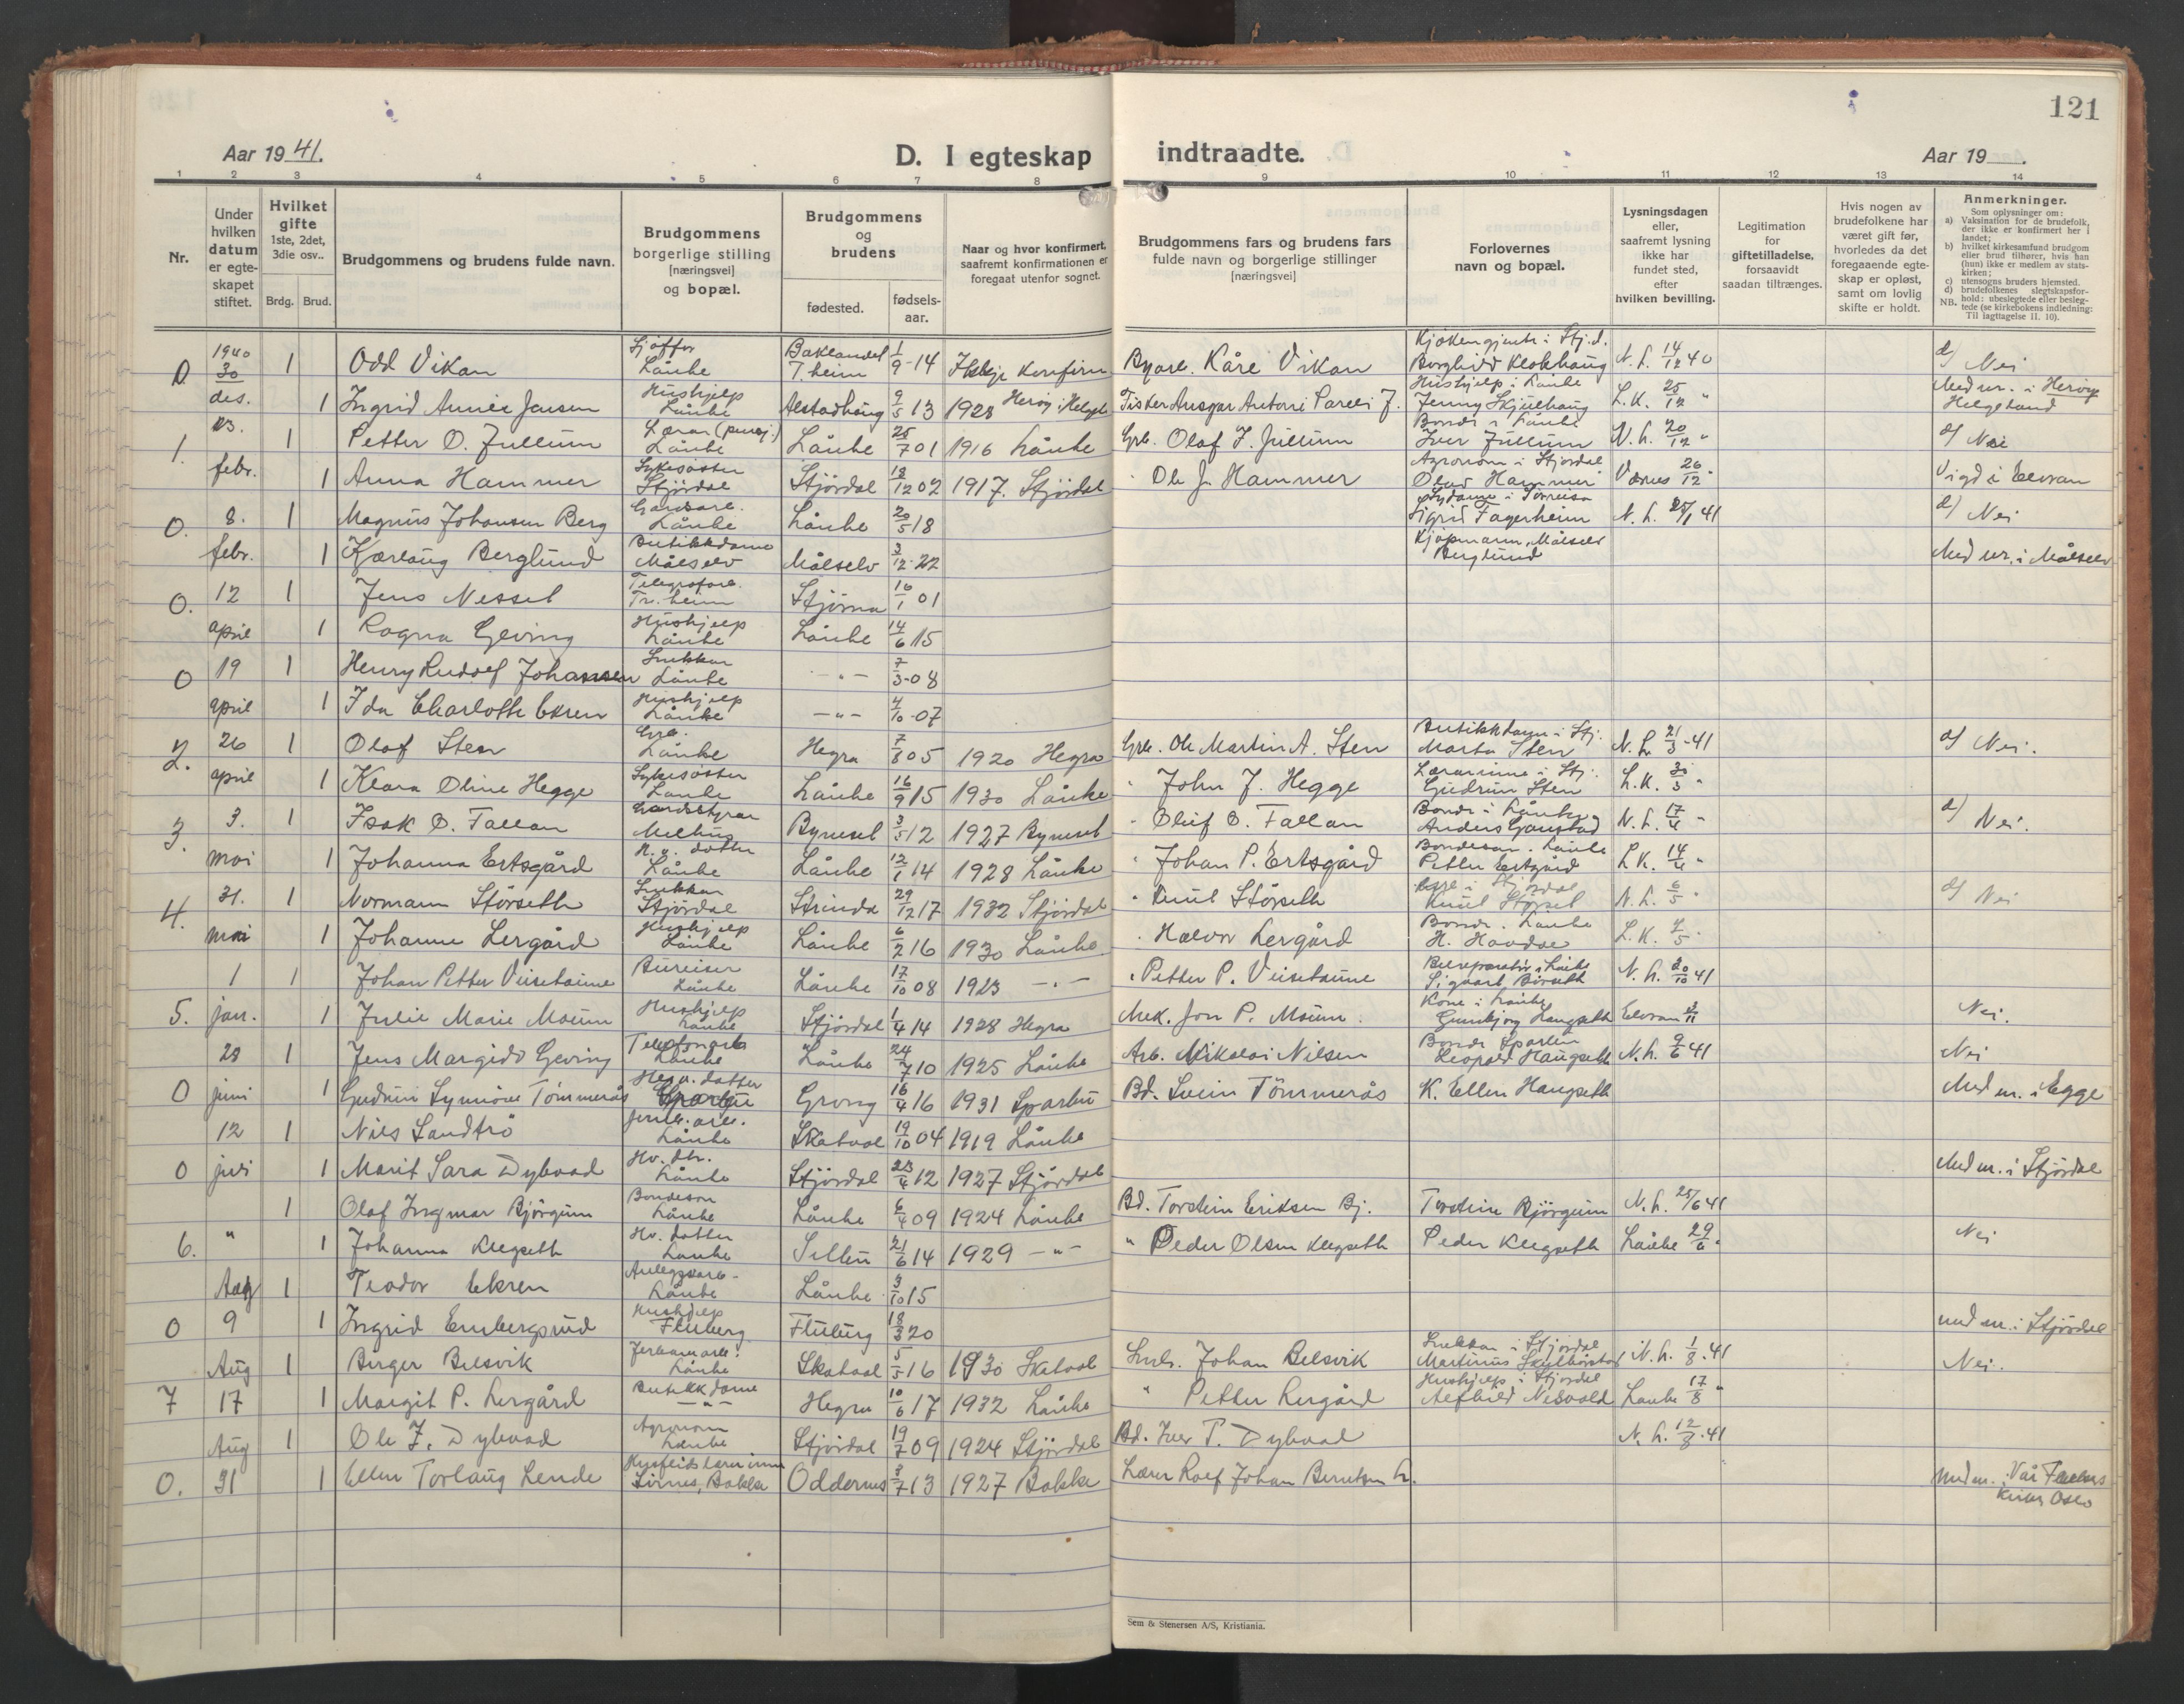 121
Aar 1941.
D. I egteskap
indtraadte.
Aar 19 .
1 2 3 4 5 6 7 8 9 10 11 12 13 14
Nr.
Under hvilken datum er egte-skapet stiftet.
Hvilket gifte
1ste, 2det, 3die osv..
Brdg. Brud.
Brudgommens og brudens fulde navn.
Brudgommens borgerlige stilling [næringsvei] og bopæl.
Brudgommens og brudens
fødested.
fødsels-aar.
Naar og hvor konfirmert, saafremt konfirmationen er foregaat utenfor sognet.
Brudgommens fars og brudens fars fulde navn og borgerlige stillinger [næringsvei]
Forlovernes navn og bopæl.
Lysningsdagen eller, saafremt lysning ikke har fundet sted, efter hvilken bevilling.
Legitimation for giftetilladelse, forsaavidt saadan tiltrænges.
Hvis nogen av brudefolkene har været gift før, hvorledes da det foregaaende egte-skap er opløst, samt om lovlig skifte er holdt.
Anmerkninger.
Som oplysninger om:
a) Vaksination for de brudefolk, der ikke er konfirmert her i landet;
b) hvilket kirkesamfund brudgom eller brud tilhører, hvis han (hun) ikke er medlem av stats-kirken;
c) utensogns bruders hjemsted.
d) brudefolkenes slegtskapsfor-hold: ubeslegtede eller besleg-tede (se kirkebokens indledning: Til iagttagelse II. 10).
NB.
0. 1940 30 des. 1 Odd Vikan Sjåffør Lånke Baklandet T.heim 1/9-14 Ikkje konfirm Byarb. Kåre Vikan Borghild Klokhaug N. L. 14/12 40 d) Nei
1 Ingrid Annie Jensen Hushjelp Lånke Alstadhaug 9/5 13 1928 Herøy i Helgel. Fisker Ansgar Antoni Pareli J. Hushjelp i Lånke Jenny Skjulhaug L.K. 25/12 " Med m. i Herøy Helgeland
1. 23. febr. 1 Petter O. Jullum Lærar (pensj.) Lånke Lånke 25/7 01 1916 Lånke Grb. Olaf J. Jullum Bonde i Lånke Iver Jullum N. L. 20/12 " d) Nei
1 Anna Hammer Sykesøster Stjørdal Stjørdal 18/12 02 1917. Stjørdal " Ole J. Hammer Agronom i Stjørdal Olav Hammer Værnes 26/12 " Vigd i Elvran
0. 8. febr. 1 Magnus Johansen Berg Gardsarb. Lånke Lånke 20/5 18 Sigrid Fagerheim N. L. 25/1 41 d) Nei
1 Kjærlaug Berglund Butikkdame Målselv Målselv 3/12-22 Kjøpmann, Målselv Berglund Med m. i Målselv
0. 12 april 1 Jens Nessel Telegrafarb. Tr.heim Stjørna 16/1 01
1 Ragna Geving Hushjelp Lånke Lånke 14/6 15
0 19 april 1 Henry Rudolf Johansen Snekkar Lånke -"- 7/3-08
1 Ida Charlotte Ekren Hushjelp Lånke -"- 4/10-07
2. 26 april 1 Olaf Sten Grb. Lånke Hegra 7/8 05 1920 Hegra Grb. Ole Martin A. Sten Butikkdame i Stj. Marta Sten N. L. 21/3-41 d) Nei.
1 Klara Oline Hegge Sykesøster Lånke Lånke 16/9 15 1930 Lånke " John J. Hegge Lærarinne i Stj. Gudrun Sten L. K. 30/3 "
3. 3. mai 1 Isak O. Fallan Gardstyrar Melhus Byneset 3/5 12 1927 Byneset " Oluf O. Fallan Bonde i Lånke Anders Gaustad N. L. 17/4 " d) Nei.
1 Johanna Ertsgård H. v. dotter Lånke Lånke 12/1 14 1928 Lånke " Johan P. Ertsgård Bondeson. Lånke Petter Ertsgård L. K. 14/4 "
4. 31. mai 1 Normann Størseth Snekkar Stjørdal Strinda 29/12 17 1932 Stjørdal " Knut Størseth Knut Størset N. L. 6/5 " d) Nei
1 Johanne Lergård Hushjelp Lånke Lånke 6/2 16 1930 Lånke " Halvor Lergård Bonde. Lånke H. Havdal L. K. 7/5 "
5. 1 jan. 1 Johan Petter Veisetaune Bureiser Lånke Lånke 17/10 08 1923 -"- " Petter P. Veisetaune Bilreparatør i Lånke N. L. 20/10 41
1 Julie Marie Moum Hushjelp Lånke Stjørdal 1/4 14 1928 Hegra Mek. Jon P. Moum. Kone i Lånke Gunbjørg Langseth Elvran 2/11 Nei.
0 28 juni 1 Jens Margido Geving Telefonarb. Lånke Lånke 24/7 10 1925 Lånke Arb. Mikolai Nilsen Bonde Sparbu Leopold Haugseth N. L. 9/6 41 Nei
1 Gudrun Synnøve Tømmerås Hv. dotter Sparbu Grong 16/4 16 1931 Sparbu Bd. Svein Tømmerås K. Ellen Haugseth Med m. i Egge
0 12 juli 1 Nils Sandtrø Jernb. arb. Lånke Skatval 19/10 04 1919 Lånke
1 Marit Sara Dybvad Hv. dtr. Lånke Stjørdal 23/4 12 1927 Stjørdal Med m. i Stjørdal
6. " 1 Olaf Ingmar Bjørgum Bondeson Lånke Lånke 6/4 09 1924 Lånke Bd. Torstein Eriksen Bj. Torstein Bjørgum N. L. 25/6 41
1 Johanna Klegseth Hv. dotter Lånke Selbu 21/6 14 1929 -"- " Peder Olsen Klegseth Peder Klegseth Lånke 29/6 " Nei
0 Aug 9 1 Teodor Ekren Anleggsarb. Lånke Lånke 3/10 15
1 Ingrid Embergsrud Hushjelp Fluberg Fluberg 18/3 20 med m. i Stjørdal
7 Aug 17 1 Birger Belsvik Jernbanearb. Lånke Skatval 5/5 16 1930 Skatval Smb. Johan Belsvik Snekkar i Stjørdal N. L. 1/8. 41 Nei.
1 Margit P. Lergård Butikkdame -"- Hegra 10/6 17 1932 Lånke " Petter Lergård Hushjelp i Stjørdal Alfhild Nesvold Lånke 17/8 "
0. Aug 31 1 Ole J. Dybvad Agronom Lånke Stjørdal 19/7 09 1924 Stjørdal Bd. Iver T. Dybvad N. L. 12/8. 41
1 Ellen Torlaug Lende Husflidslærerinne Lirnes, Bakke Oddernes 3/7 13 1927 Bakke Lærer Rolf Johan Berntsen L. med m. i Vår Frelsers Kirke Oslo
Sem & Stenersen A/S, Kristiania.